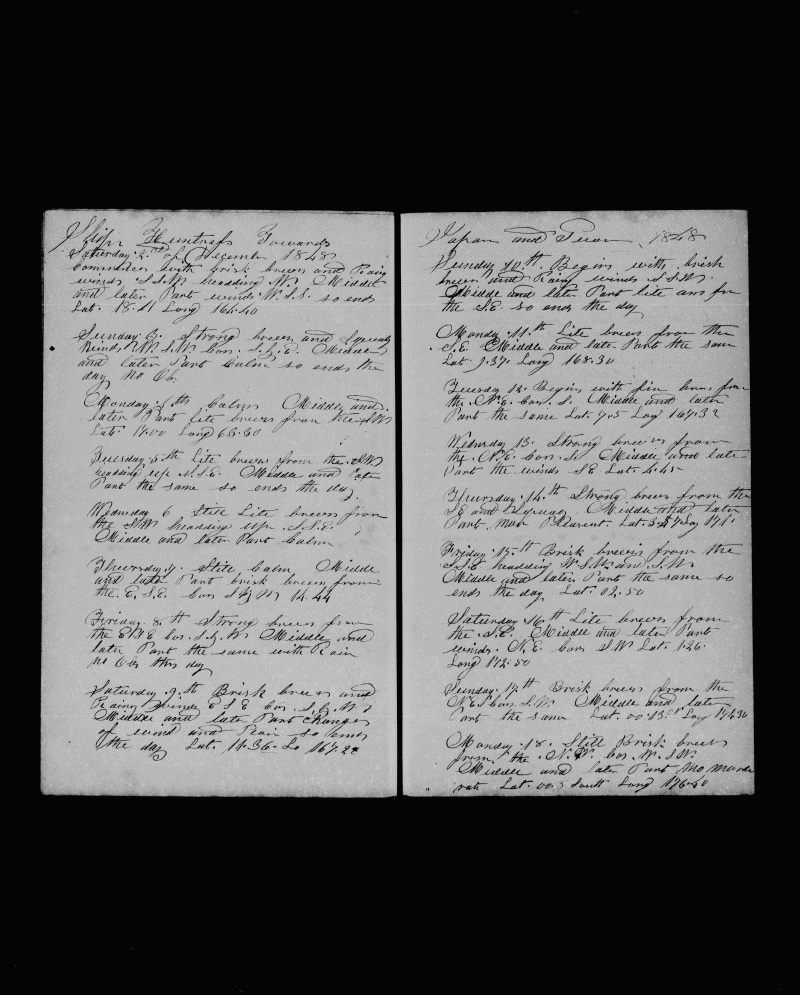 Ship Huntress Towards
Saturday 2nd of December 1848
Commences with brisk breeze and Rainy
winds S.S.W heading W. Middle
and later Part winds W.S.S. so ends
Lat. 18.11 Long 164.40
Sunday 3. Strong breeze and Squaly
Winds W. S.W Cors. S.S.E. Middle
and later Part Calm so ends the
day no Ob.
Monday 4th Calm Middle and
later Part lite breeze from the SW
Lat. 17.00 Long 65.30
Tuesday 5th Lite breeze from the SW
heading up S.S.E. Middle and later
Part the same so ends the day
Wednsday 6 Still Lite breeze from
the SW heading up S.S.E.
Middle and later Part Calm
Thuersday 7. Still Calm Middle
and later Part brisk breeze from
the E.S.E. Cors S by W 14.44
Friday 8th Strong breeze from
the ESE Cors. S.by W Middle and
later Part the same with Rain
no Obs this day
Saturday 9th Brisk breeze and
Rainy winds E S E Cors. S. by W
Middle and late Part changes
of wind and Rain so ends
the day Lat. 11.36. Lo 167.22
Japan and 1848
Sunday 10th. Begins with brisk
breeze and Rainy winds S.S.W.
Middle and later Part lite ars from
the S.E. so ends the day
Monday 11th Lite breeze from the
S.E. Middle and late Part the same
Lat 9.37. Long 168.30
Tuesday 12. Begins with fin breeze from
the N.E. Cors. S. Middle and later
Part the same Lat. 7.5 Log 167.32
Wednsday 13. Strong breeze from
the N.E. Cors. So Middle and late
Part the winds SE Lat. 4.45
Thuersday 14th Strong breeze from the
SE and Squaly Middle and later
Part. mor Plesent. Lat. Log 171
Friday 15th Brisk breeze from the
S.S.E heading W S.W. and S.W
Middle and later Part the same so
ends the day Lat. 02.50
Saturday 16th Lite breeze from
the S.E. Middle and later Part
winds. N.E. Cors S.W Lat. 1.26.
Long 172.50
Sunday 17th Brisk breeze from the
N.E. Cors. S.W. Middle and late
Part the same Lat. 00.13 Log 174.30
Monday 18. Still Brisk breeze
from the N.E. Cors. W.S.W.
Middle and later Part mo mode
rate Lat. 00.5 South Long 176.40